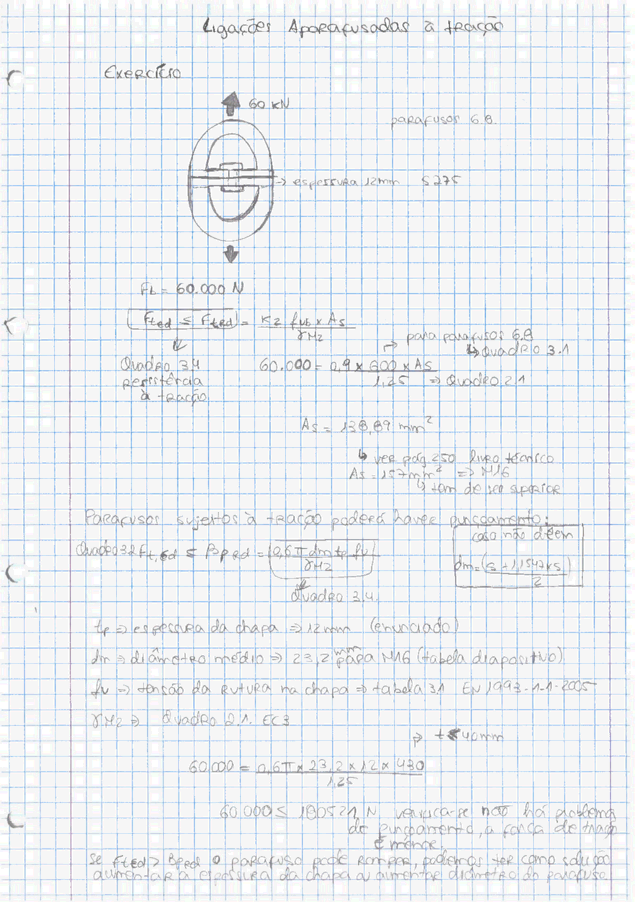 Ligações Aparafusadas à tração
Exercício
60 KN
parafusos 6.8.
→ espessura 12mm S275
Ft = 60.000 N
Fted ≤ Fted = K2 fub × As / γM2
→ para parafusos 6.8
↳ Quadro 3.1
Quadro 3.4
Resistência
à tração
60.000 = 0,9 × 600 × As / 1,25 ⇒ Quadro 2.1
As = 138,89 mm²
↳ ver pág. 250 livro técnico
As = 157 mm² ⇒ M16
↳ tem de ser superior
Parafusos sujeitos à tração poderá haver punçoamento:
Quadro 3.2 Ft,ed ≤ Bp,Rd = 0,6 π dm tp fu / γM2
Quadro 3.4.
caso não dêem
dm = (s + 1,1547 × s) / 2
tp ⇒ espessura da chapa ⇒ 12mm (enunciado)
dm ⇒ diâmetro médio ⇒ 23,2 mm para M16 (tabela diapositivo)
fu ⇒ tensão da rutura na chapa ⇒ tabela 3.1 EN 1993-1-1-2005
γM2 ⇒ Quadro 2.1. EC3
⇒ t < 40mm
60.000 = 0,6π × 23,2 × 12 × 430 / 1,25
60.000 ≤ 180521, N verifica-se não há problema
de punçoamento, a força de tração
é menor.
Se Fted > Bprd o parafuso pode romper, podemos ter como solução
aumentar a espessura da chapa ou aumentar diâmetro do parafuso